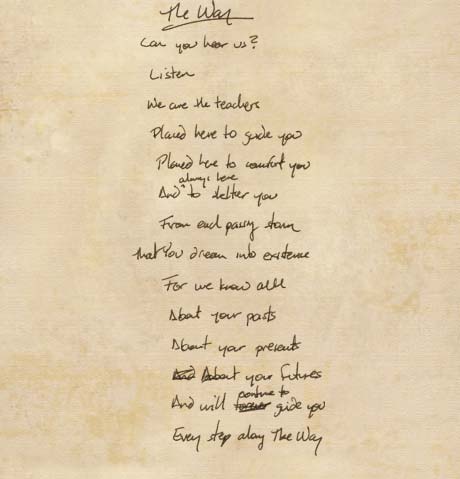 The Way
Can you hear us?
Listen
We are the teachers
Placed here to guide you
Placed here to comfort you
always here
And to shelter you
From each passing storm
that You dream into existence
For we know all
About your pasts
About your presents
And About your futures
And will continue to forever guide you
Every step along The Way